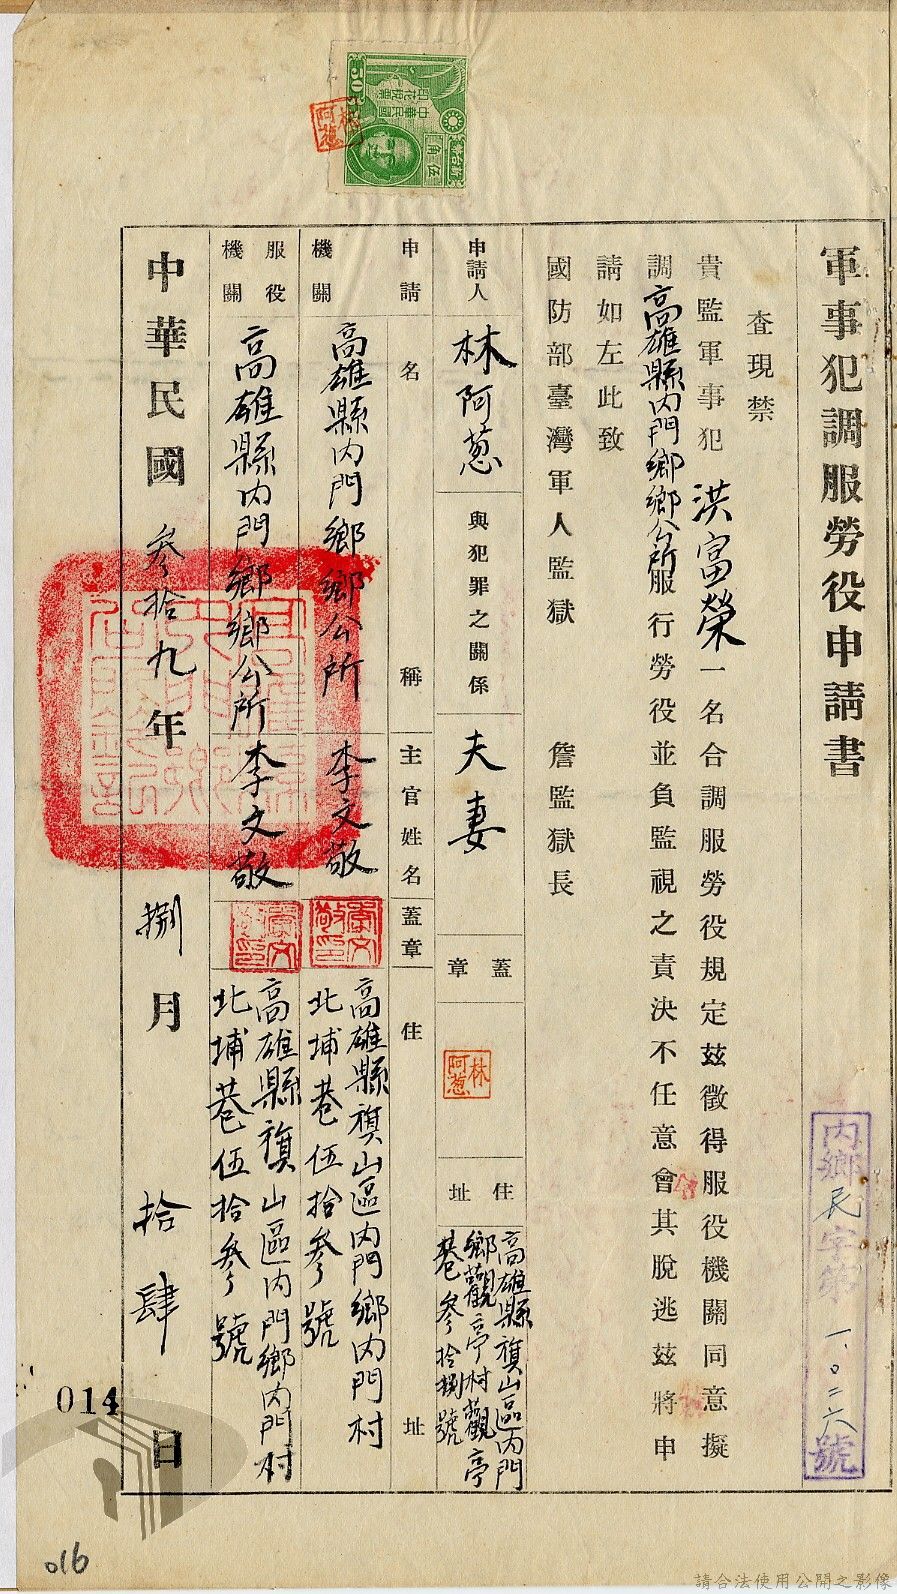 軍事犯調服勞役申請書
內鄉民字第一〇二六號
查現禁
貴監軍事犯洪富榮一名合調服勞役規定茲徵得服役機關同意擬
調高雄縣內門鄉鄉公所服行勞役並負監視之責決不任意會其脫逃茲將申
請如左此致
國防部臺灣軍人監獄 詹監獄長
申請人 林阿葱 與犯罪之關係 夫妻 蓋章 林阿葱 住址 高雄縣旗山區內門
鄉觀亭村觀亭
巷參拾捌號
申請 名稱 主官姓名 蓋章 住址
機關 高雄縣內門鄉鄉公所 李文敬 李文敬印 高雄縣旗山區內門鄉內門村
北埔巷伍拾參號
服役機關 高雄縣內門鄉鄉公所 李文敬 李文敬印 高雄縣旗山區內門鄉內門村
北埔巷伍拾參號
中華民國參拾九年捌月拾肆日
林阿葱
中華民國
印花稅票
伍角
50
014
016
請合法使用公開之影像